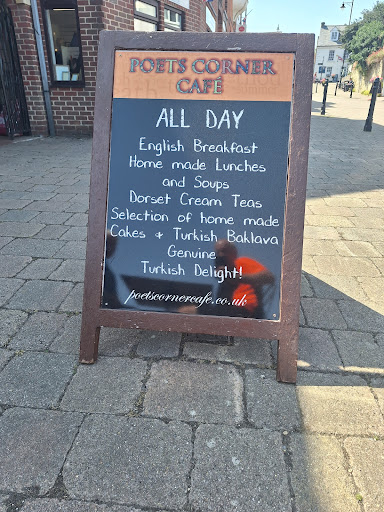 POETS CORNER
CAFÉ
ALL DAY
English Breakfast
Home made Lunches
and Soups
Dorset Cream Teas
Selection of home made
Cakes & Turkish Baklava
Genuine
Turkish Delight!
poetscornercafe.co.uk